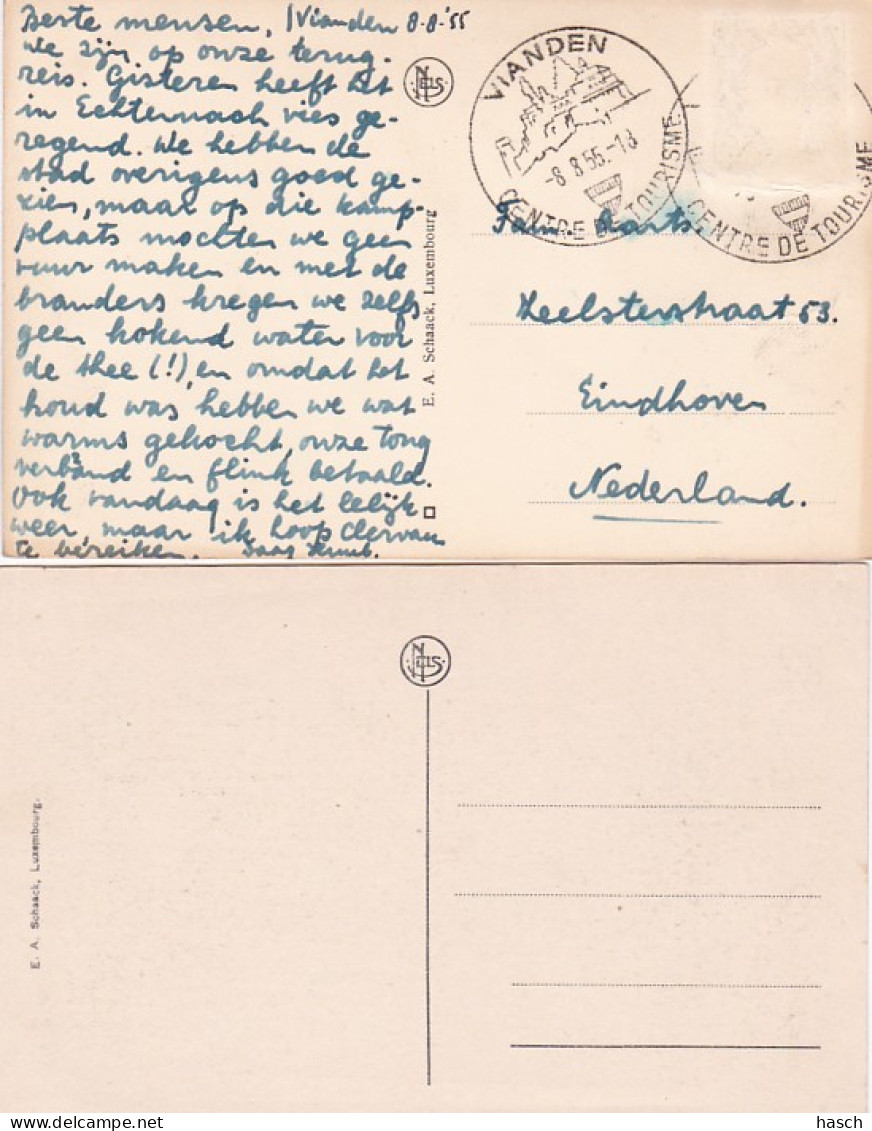 Beste mensen, Vianden 8-8-'55
We zijn op onze terug-
reis. Gisteren heeft het
in Echternach vies ge-
regend. We hebben de
stad overigens goed ge-
zien, maar op die kamp-
plaats mochten we geen
vuur maken en met de
branders kregen we zelfs
geen kokend water voor
de thee (!), en omdat het
koud was hebben we wat
warms gekocht, onze tong
verbrand en flink betaald.
Ook vandaag is het lelijk
weer, maar ik hoop Clervau
te bereiken. Daag
NELS
E. A. Schaack, Luxembourg
VIANDEN
-8.8.55.-18
CENTRE DE TOURISME
CENTRE DE TOURISME
Fam. Aarts
Zeelsterstraat 53.
Eindhoven
Nederland.
NELS
E. A. Schaack, Luxembourg.
hasch